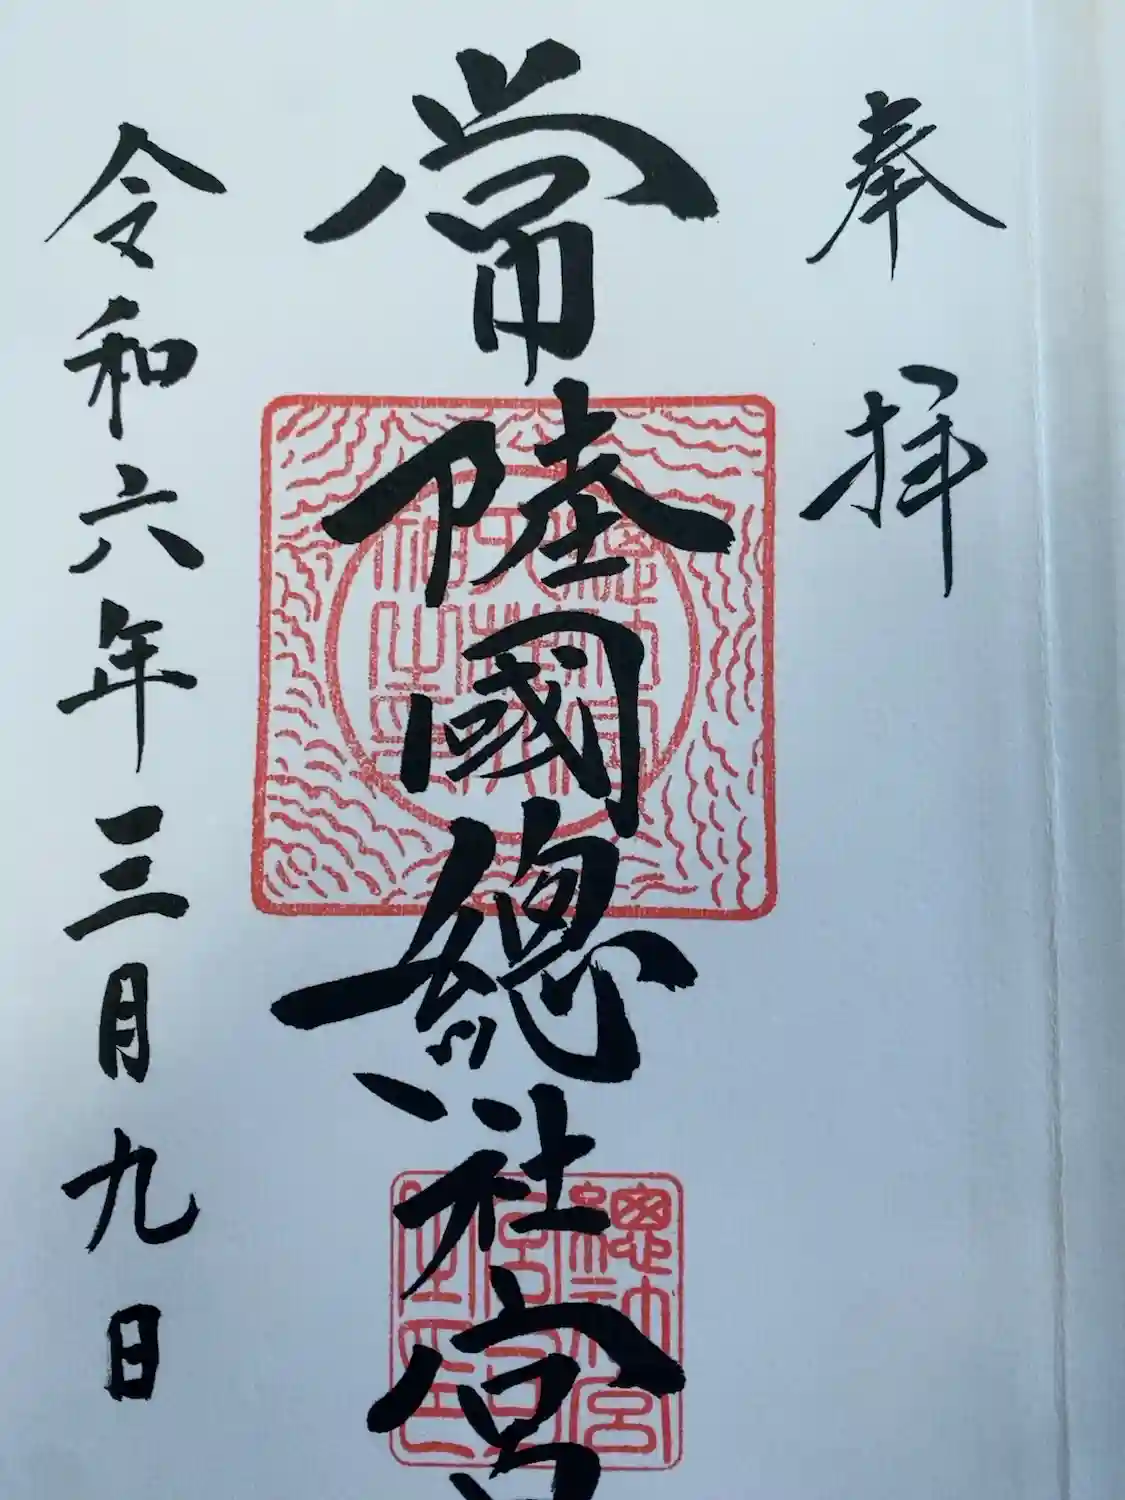 奉拝
常陸國總社宮
令和六年三月九日